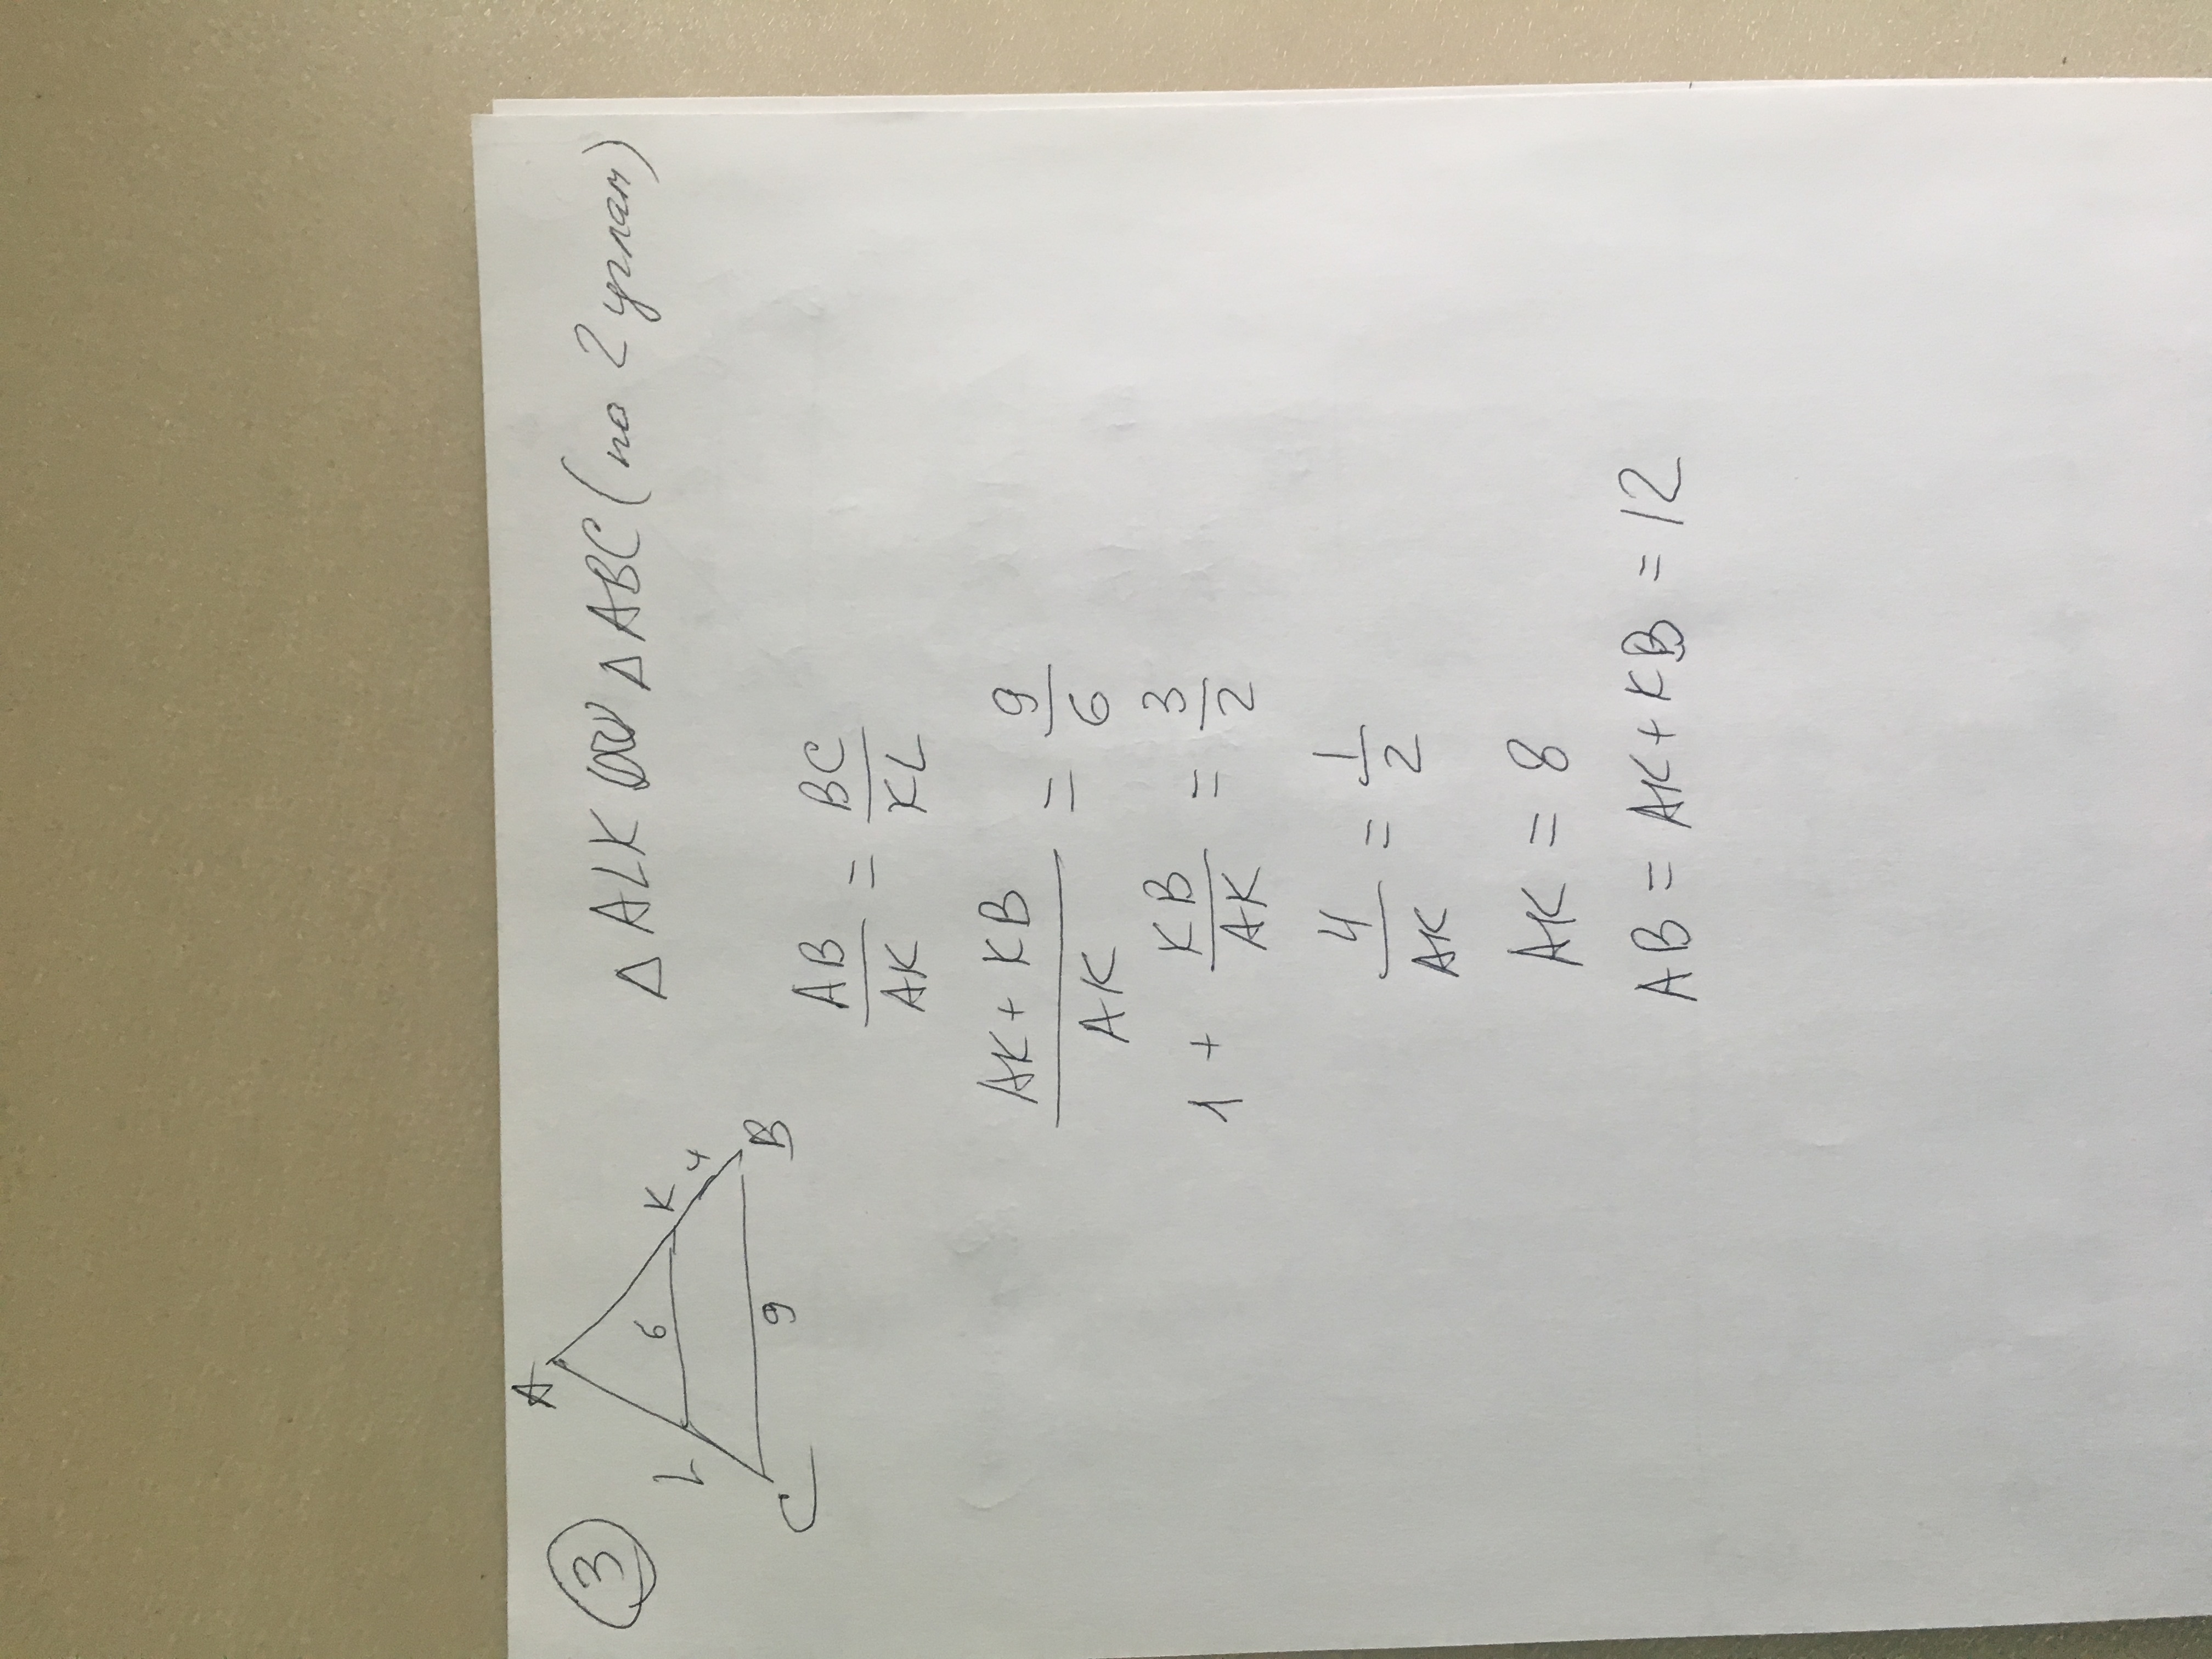 ③
A
L
K
4
6
C
9
B
Δ ALK ∾ Δ ABC (по 2 углам)
AB/AK = BC/KL
(AK + KB)/AK = 9/6
1 + KB/AK = 3/2
4/AK = 1/2
AK = 8
AB = AK + KB = 12